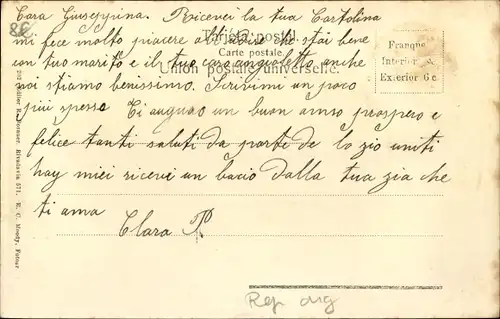 Cara Giuseppina. Ricevei la tua Cartolina
86
mi fece molto piacere al sapire che stai bene
Tarjeta postal.
Carte postale.
con tuo marito e il tuo caro angioletto anche
Union postale universelle.
Franqueo
Interior
Exterior 6 c
noi stiamo benissimo. Scrivimi un poco
piú spesso Ti auguro un buon anno prospero e
felice tanti saluti da parte de lo zio uniti
hay miei ricevi un bacio dalla tua zia che
ti ama
Clara P
Editor R. Rosauer, Rivadavia 571. E. C. Moody, Fotogr.
Rep arg